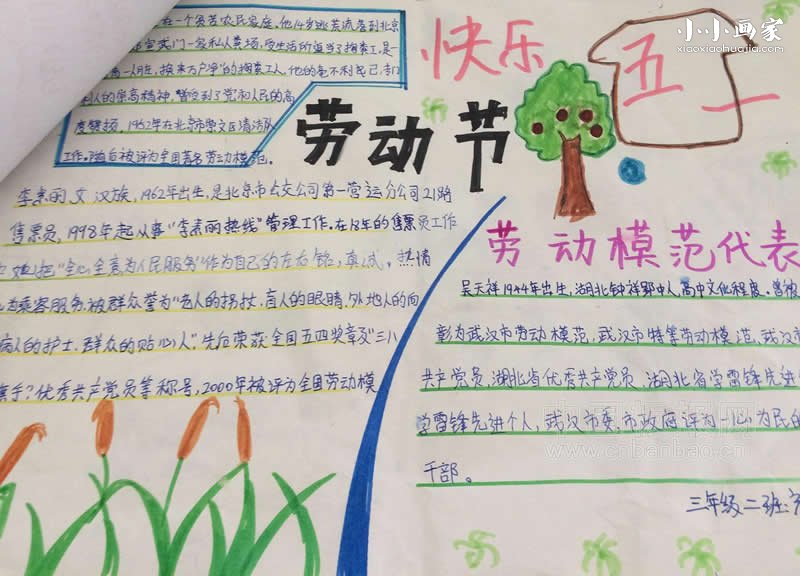 小小画家
xiaoxiaohuajia.com
快乐
五一
在一个贫苦农民家庭。他14岁逃荒流落到北京
一家私人粪场,受生活所迫当了掏粪工,是一
一人脏,换来万户净"的掏粪工人,他的毫不利己,专门
利人的崇高精神,曾受到了党和人民的高
度赞扬,1962年在北京市崇文区清洁队
工作。随后被评为全国著名劳动模范。
劳动节
李素丽,女,汉族,1962年出生,是北京市公交公司第一营运分公司21路
售票员,1998年起从事"李素丽热线"管理工作。在18年的售票员工作
她把"全心全意为人民服务"作为自己的左右铭,真诚、热情
为乘客服务,被群众誉为"老人的拐杖,盲人的眼睛,外地人的向
病人的护士,群众的贴心人"先后荣获全国五四奖章及"三八
旗手"优秀共产党员等称号,2000年被评为全国劳动模
劳动模范代表
吴天祥1944年出生,湖北钟祥郢中人,高中文化程度。曾被
彰为武汉市劳动模范,武汉市特等劳动模范,武汉市
共产党员,湖北省优秀共产党员,湖北省学雷锋先进个
学雷锋先进个人,武汉市委、市政府评为一心为民的
干部。
www.cnbanbao.cn
三年级二班